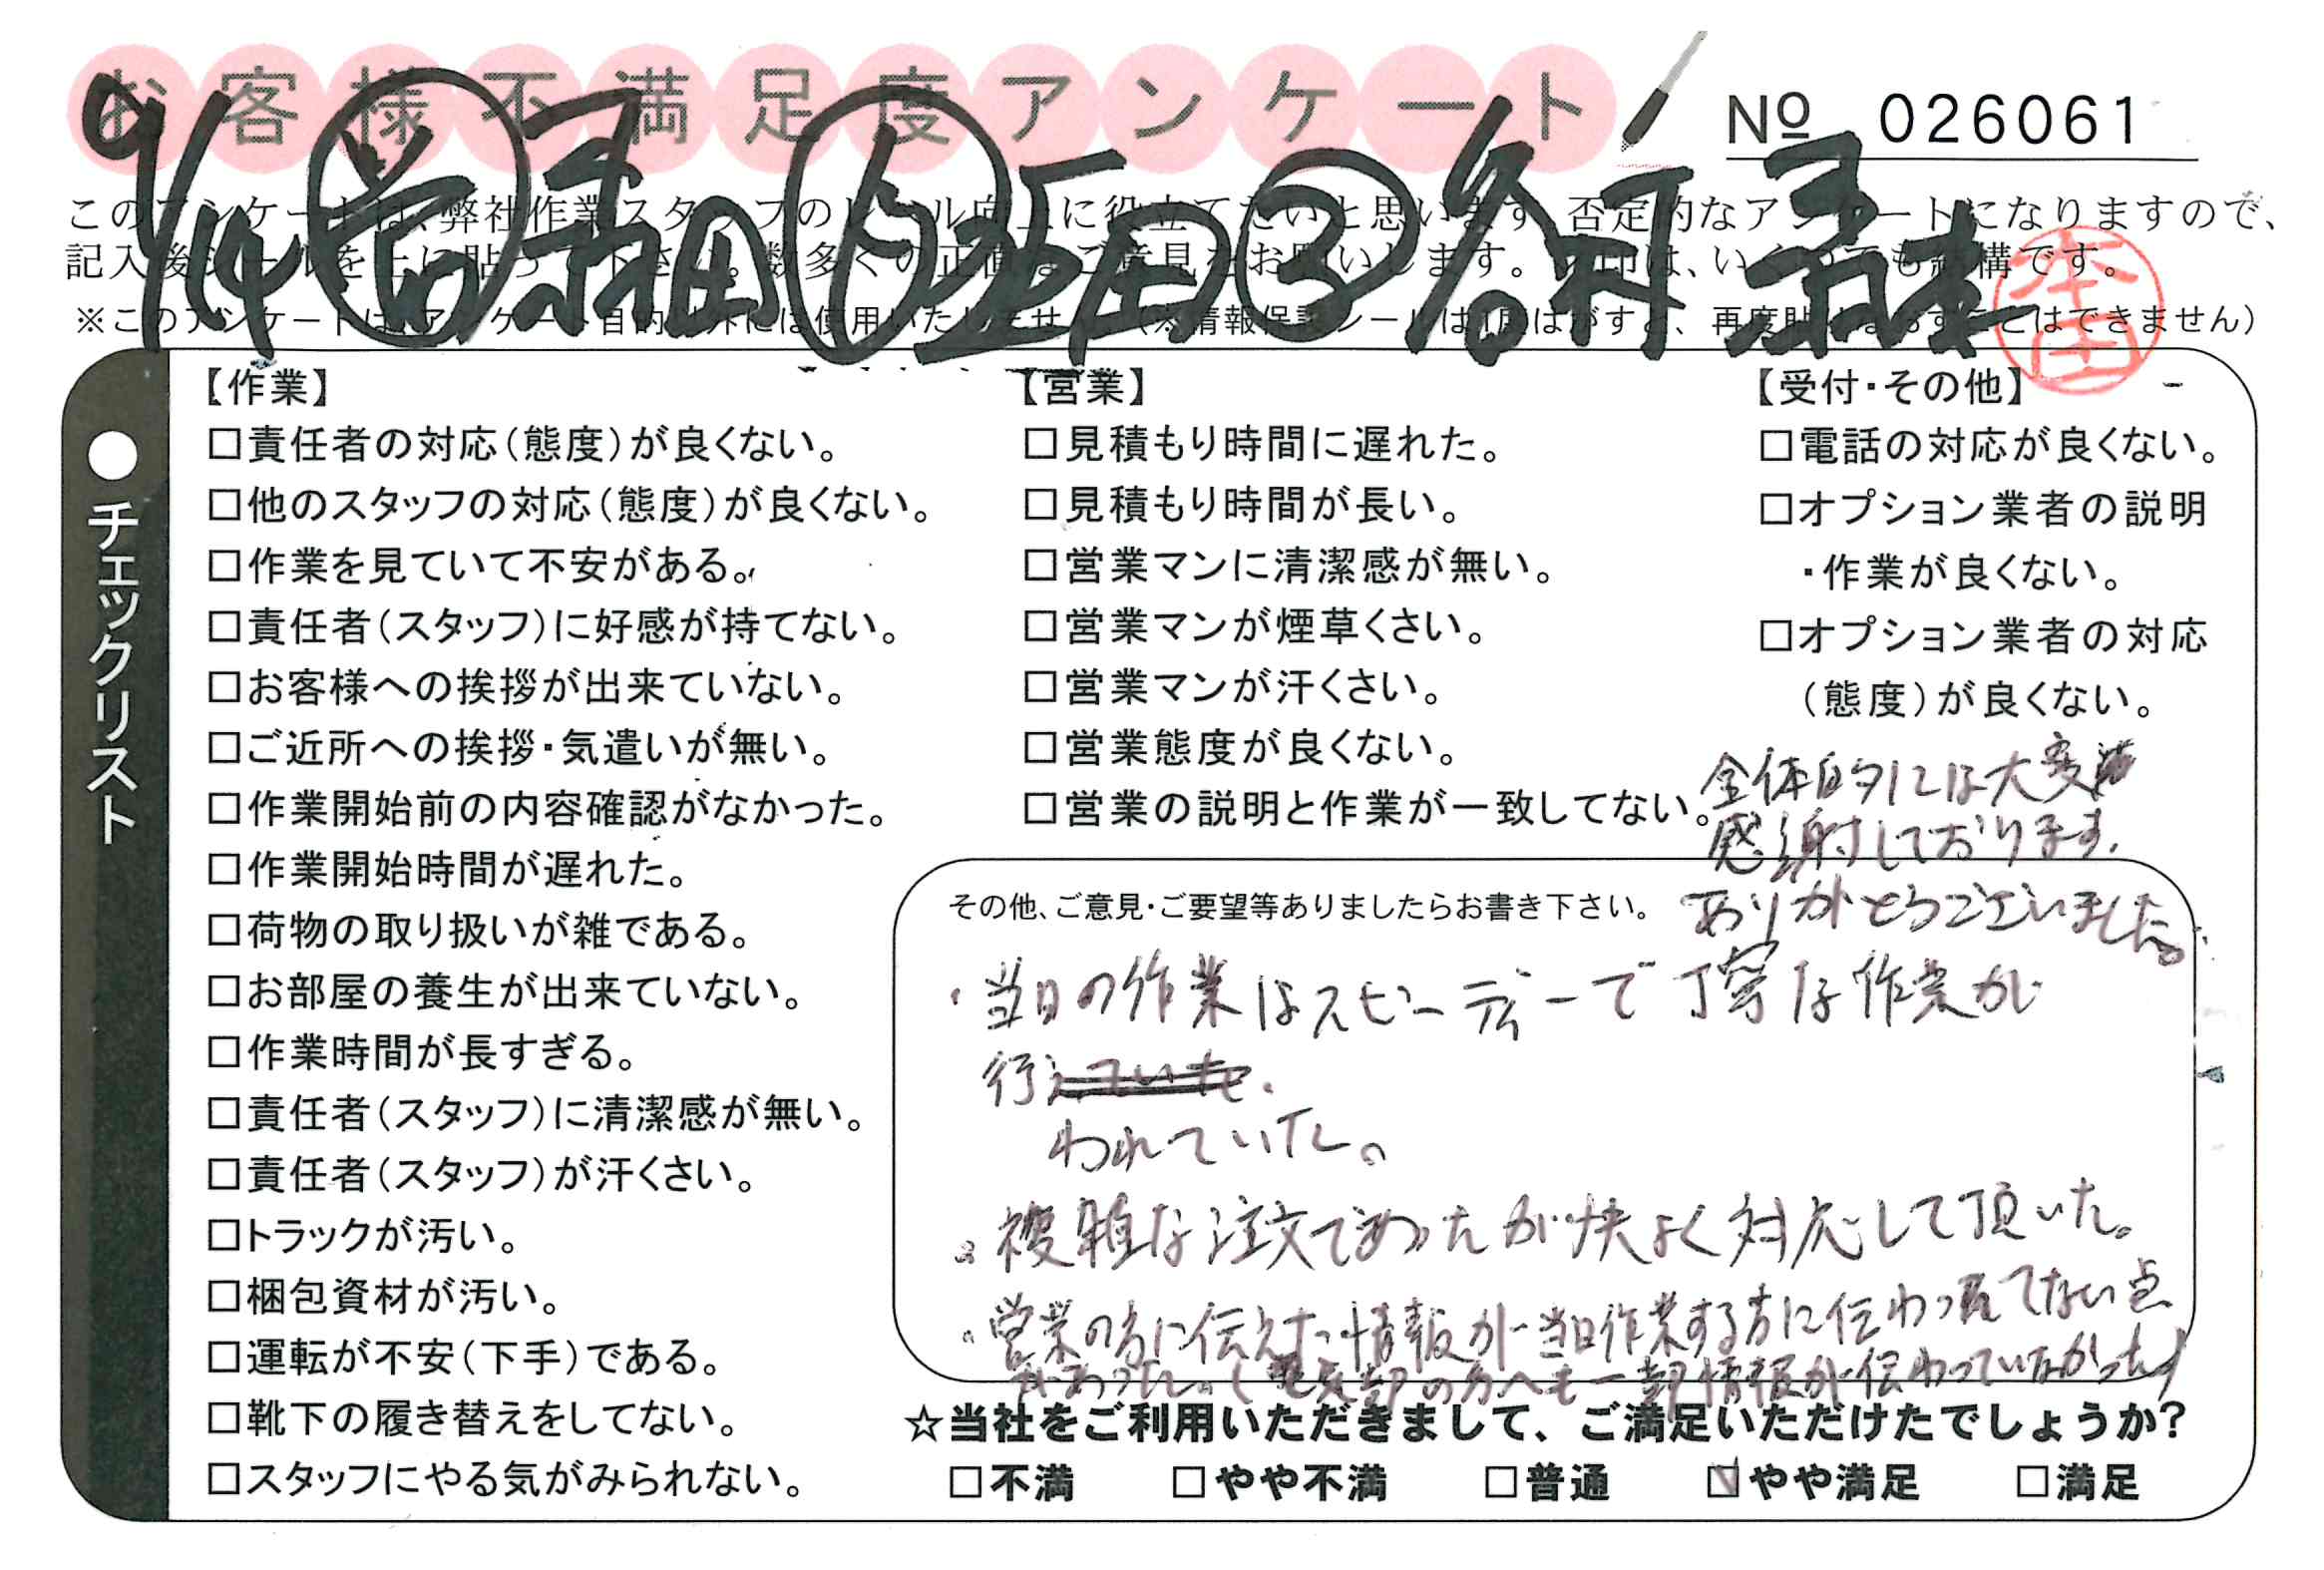 お客様不満足度アンケート
№ 026061
9/14
このアンケートは、弊社作業スタッフのレベル向上に役立てたいと思います。否定的なアンケートになりますので、
記入後シールを上に貼って下さい。数多くの正直なご意見をお願いします。 は、いくつでも結構です。
※このアンケートは、アンケート目的以外には使用いたしません。(※情報保護シールは1度はがすと、再度貼りなおすことはできません)
本田
●チェックリスト
【作業】
□責任者の対応(態度)が良くない。
□他のスタッフの対応(態度)が良くない。
□作業を見ていて不安がある。
□責任者(スタッフ)に好感が持てない。
□お客様への挨拶が出来ていない。
□ご近所への挨拶・気遣いが無い。
□作業開始前の内容確認がなかった。
□作業開始時間が遅れた。
□荷物の取り扱いが雑である。
□お部屋の養生が出来ていない。
□作業時間が長すぎる。
□責任者(スタッフ)に清潔感が無い。
□責任者(スタッフ)が汗くさい。
□トラックが汚い。
□梱包資材が汚い。
□運転が不安(下手)である。
□靴下の履き替えをしてない。
□スタッフにやる気がみられない。
【営業】
□見積もり時間に遅れた。
□見積もり時間が長い。
□営業マンに清潔感が無い。
□営業マンが煙草くさい。
□営業マンが汗くさい。
□営業態度が良くない。
□営業の説明と作業が一致してない。
【受付・その他】
□電話の対応が良くない。
□オプション業者の説明
・作業が良くない。
□オプション業者の対応
(態度)が良くない。
全体的には大変
感謝しております。
ありがとうございました。
その他、ご意見・ご要望等ありましたらお書き下さい。
・当日の作業はスピーディーで丁寧な作業が
行
われていた。
。複雑な注文であったが快よく対応して頂いた。
。営業の方に伝えた情報が当日作業する方に伝わってない点
があった。(電気部の方へも一部情報が伝わっていなかった)
☆当社をご利用いただきまして、ご満足いただけたでしょうか?
□不満 □やや不満 □普通 ☑やや満足 □満足